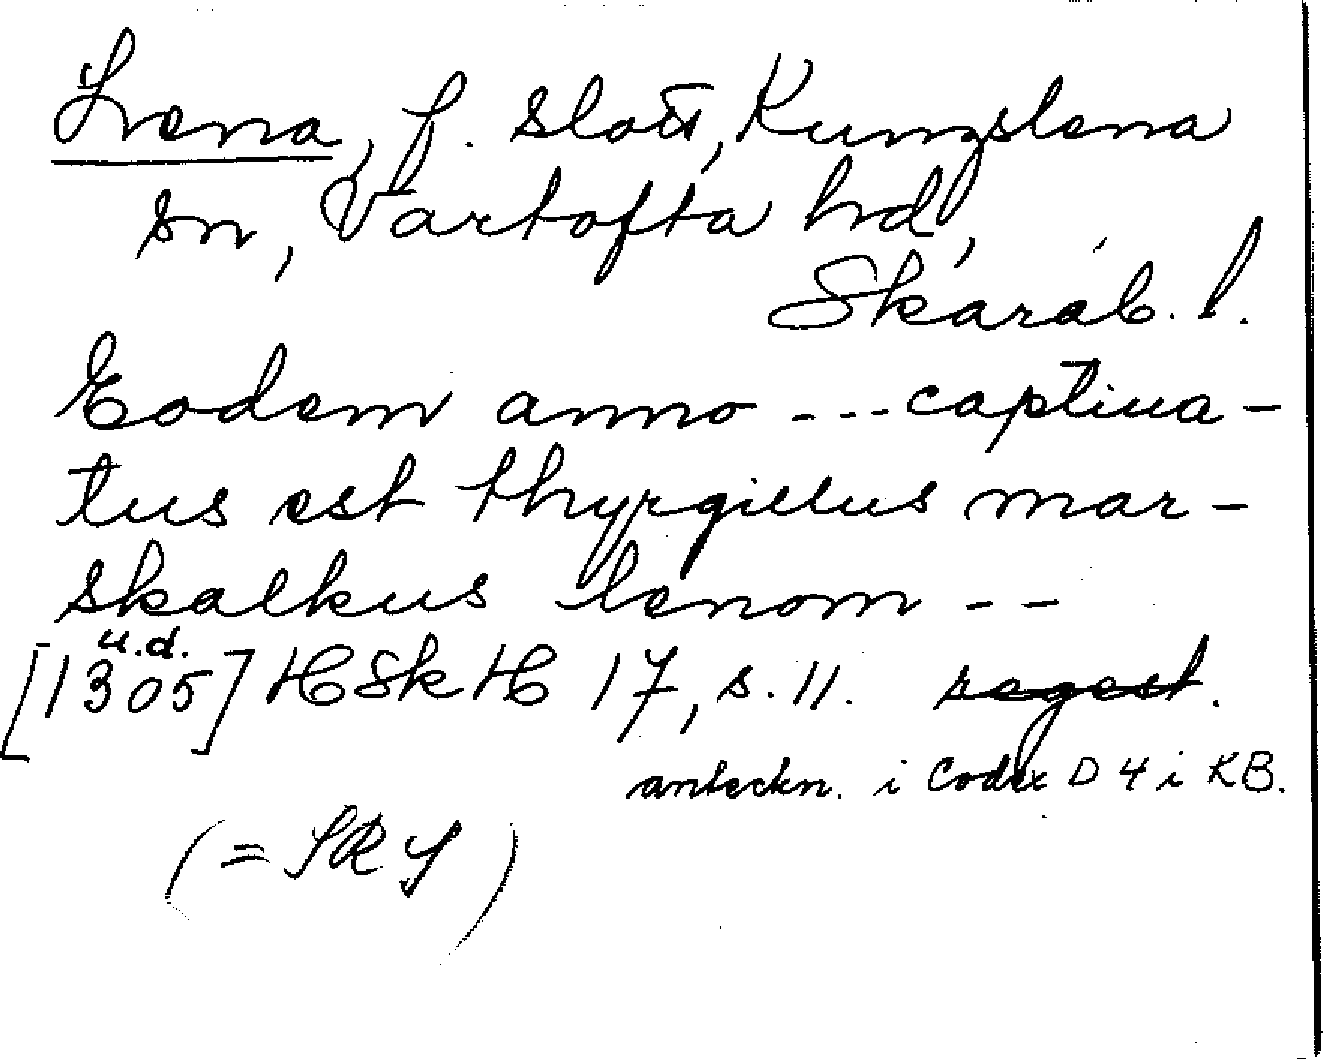 Lena, f. slott, Kungslena
sn, Vartofta hd,
Skarab. l.
Eodem anno --- captiua-
tus est thyrgillus mar-
skalkus lenom --
u.d.
[1305] HSkH 17, s. 11. regest.
anteckn. i Codex D 4 i KB.
(= SRS)